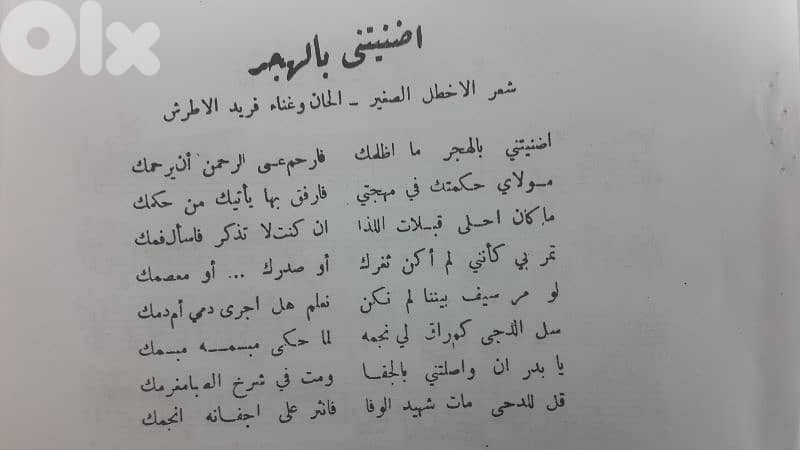 OLX
اضنيتني بالهجر
شعر الاخطل الصغير - الحان وغناء فريد الاطرش
اضنيتني بالهجر ما اظلمك فارحم عسى الرحمن أن يرحمك
مولاي حكمتك في مهجتي فارفق بها يأتيك من حكمك
ما كان احلى قبلات اللذا ان كنت لا تذكر فاسأل فمك
تمر بي كأنني لم أكن ثغرك أو صدرك ... أو معصمك
لو مر سيف بيننا لم نكن نعلم هل اجرى دمي أم دمك
سل الدجى كم راق لي نجمه لما حكى مبسمه مبسمك
يا بدر ان واصلتني بالجفا ومت في شرخ الصبا مغرمك
قل للدحى مات شهيد الوفا فانثر على اجفانه انجمك